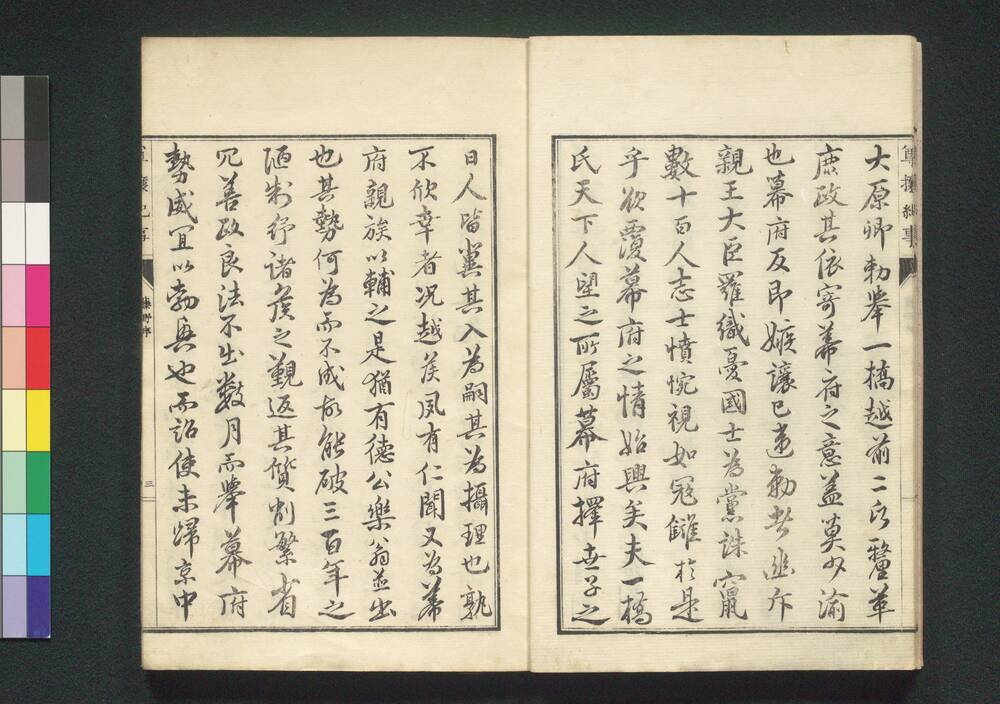 大原卿勅擧一橋越前二氏釐革
庶政其依寄幕府之意益莫少渝
也幕府反即嫉讓已違勅世幽斥
親王大臣羅織憂國士為黨誅竄
數十百人志士憤惋視如寇讎於是
乎欲覆幕府之情始興矣夫一橋
氏天下人望之所屬幕府擇世子之
日人皆冀其入為嗣其為攝理也孰
不欣幸者況越侯夙有仁聞又為幕
府親族以輔之是猶有德公樂翁並出
也其勢何為而不成故能破三百年之
陋制紓諸侯之覲返其質削繁省
冗善政良法不出數月而擧幕府
勢威宜以勃興也而詔使未歸京中
藤野序
三